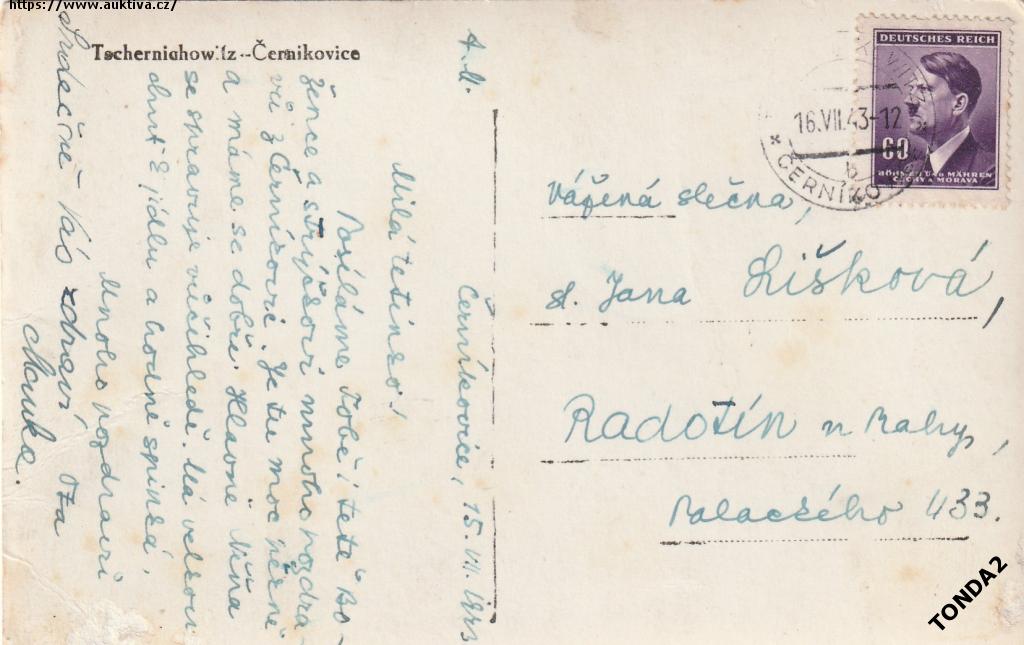 https://www.auktiva.cz/
Tschernichowitz-Černikovice
A.M.
Černíkovice, 15.VII.1943
Milá tetinko!
Posíláme Tobě i tetě Bo-
žence a strýčkovi mnoho pozdra-
vů z Černíkovic. Je tu moc pěkně
a máme se dobře. Hlavně Míša
se spravuje vůčihledě. Má velkou
chuť k jídlu a hodně spinká,
Mnoho pozdravů
Ota
Srdečně Vás zdraví
DEUTSCHES REICH
60
BÖHMEN UND MÄHREN
ČECHY A MORAVA
16.VII.43-12
b
ČERNÍKO
Vážená slečna,
sl. Jana Lišková,
Radotín u Prahy,
Palackého 433.
TONDA2